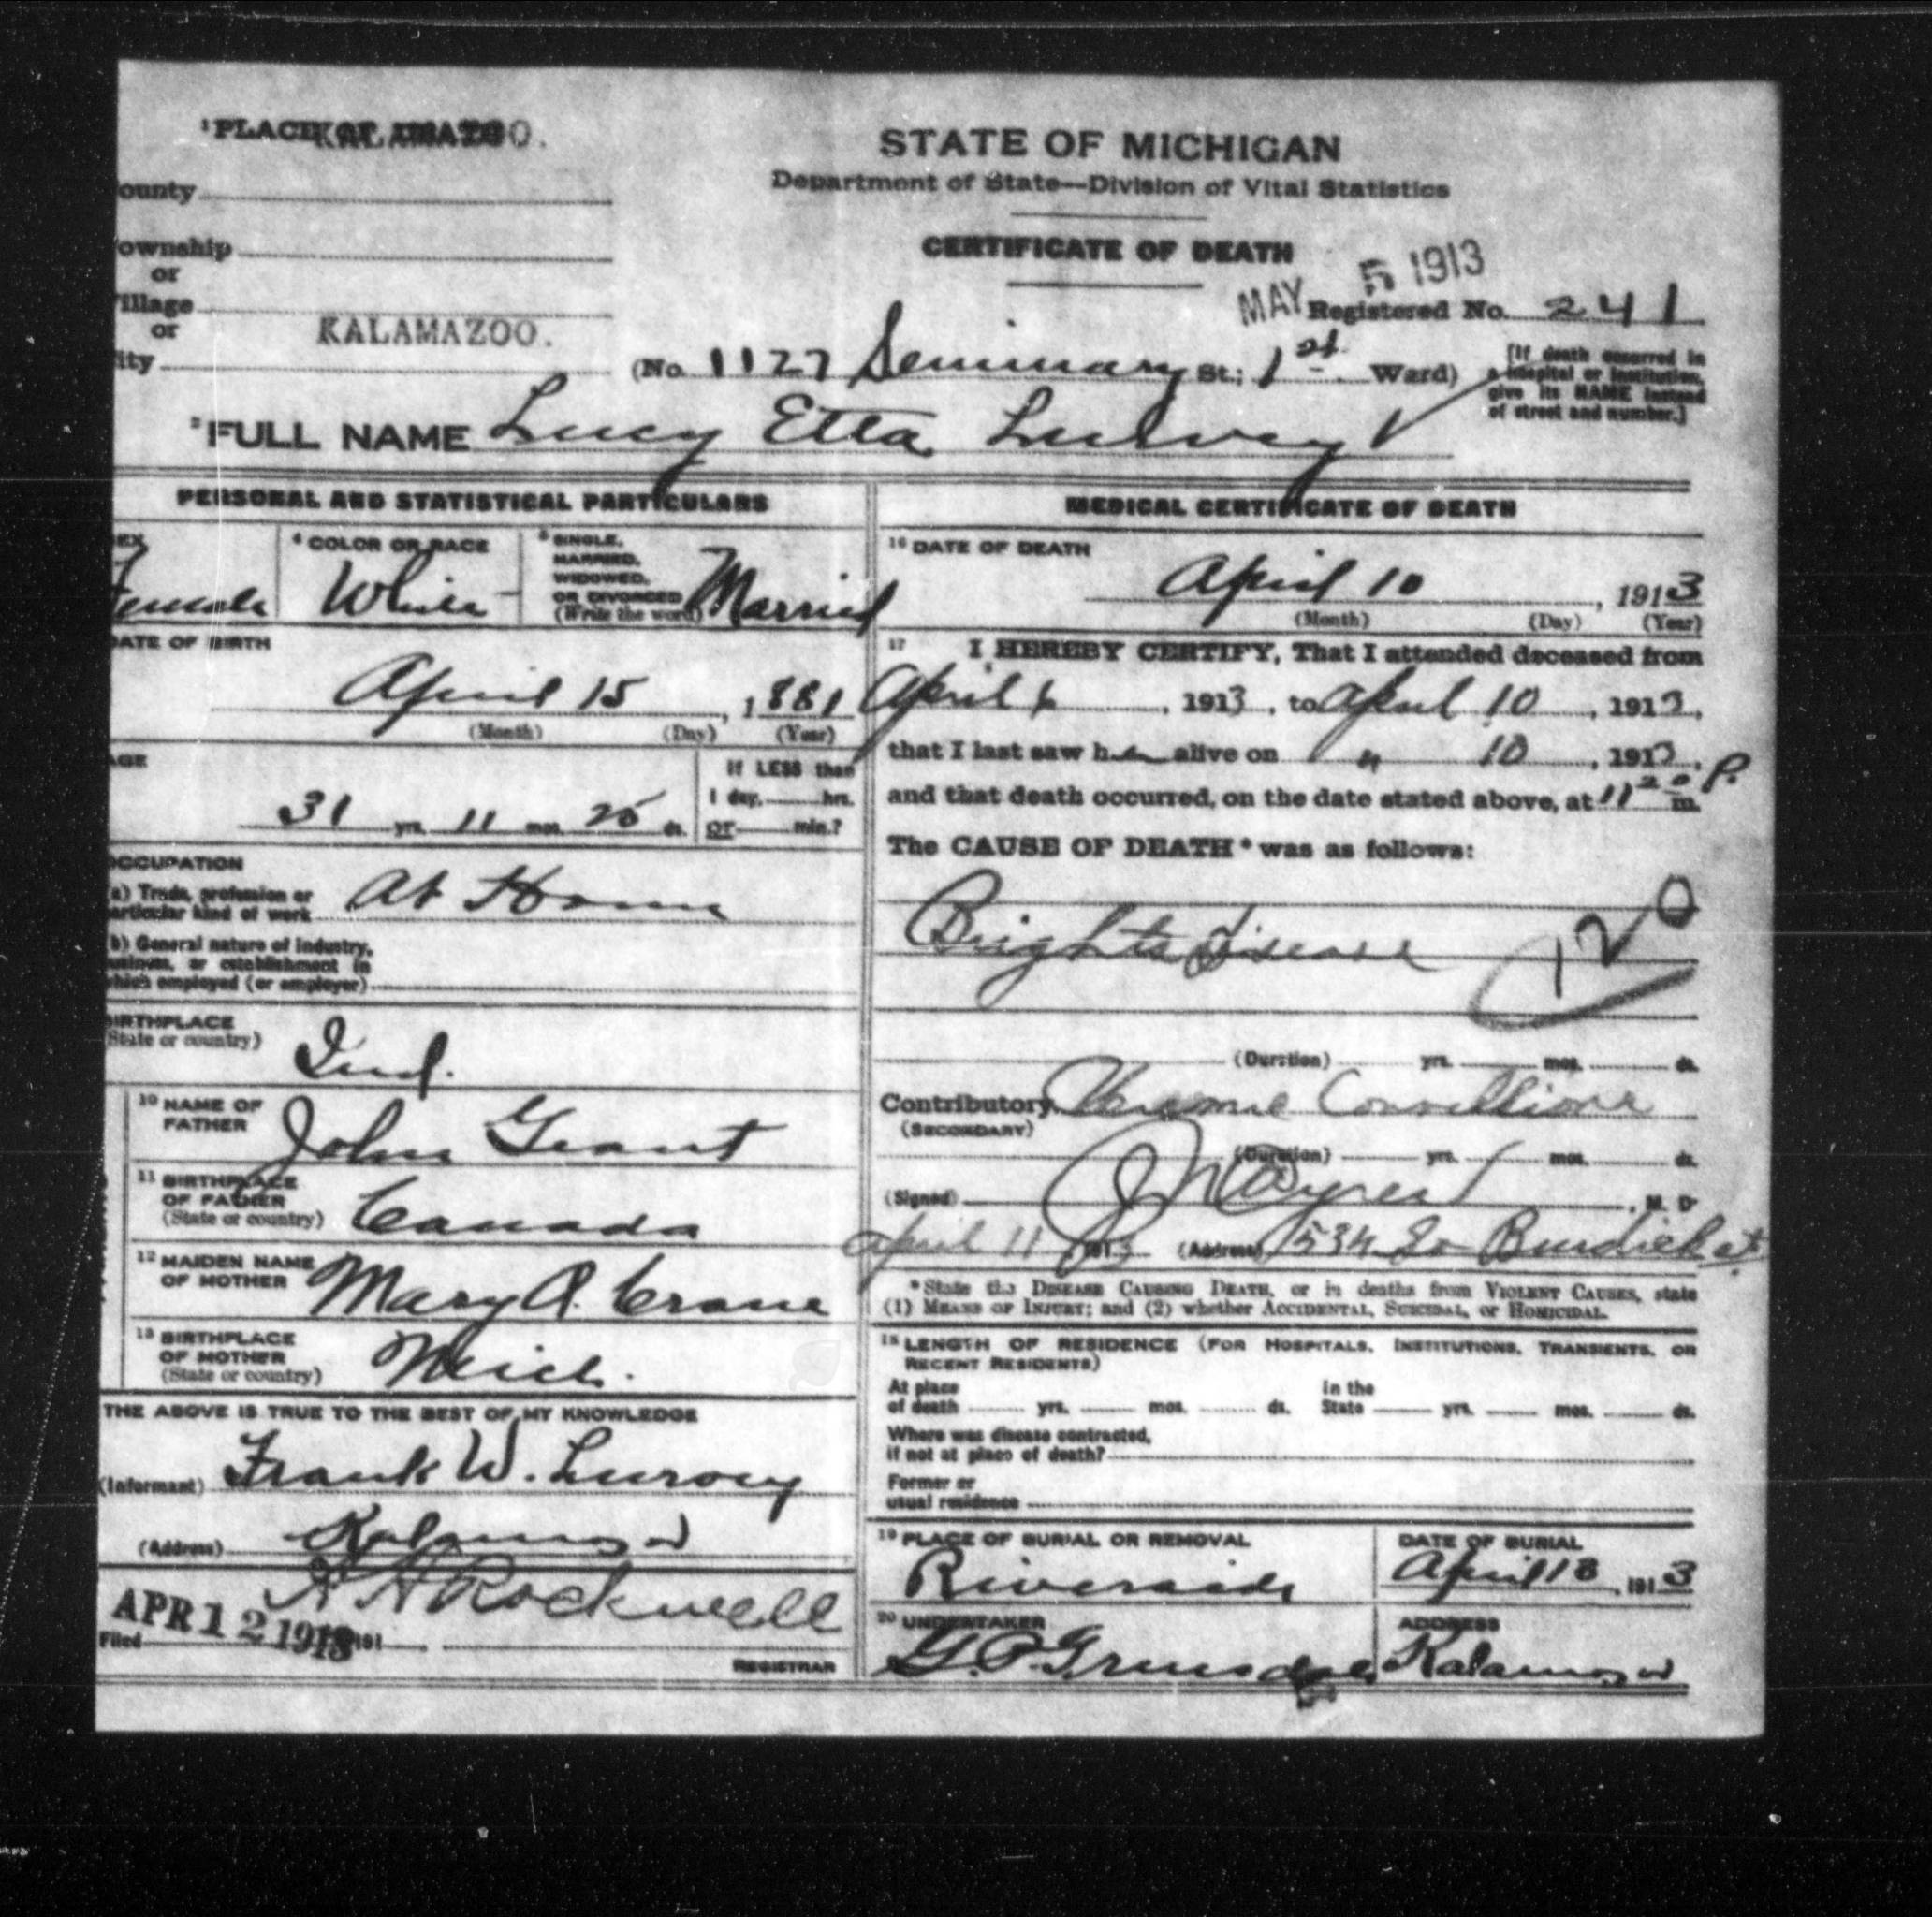 ¹PLACE OF DEATH KALAMAZOO.
STATE OF MICHIGAN
Department of State—Division of Vital Statistics
ounty
CERTIFICATE OF DEATH
ownship
or
illage
or
MAY 5 1913
Registered No. 241
KALAMAZOO.
ity
(No. 1127 Seminary St.; 1st Ward)
[If death occurred in
a hospital or institution,
give its NAME instead
of street and number.]
²FULL NAME Lucy Etta
PERSONAL AND STATISTICAL PARTICULARS
EX
Female
⁴ COLOR OR RACE
White
⁵ SINGLE,
MARRIED,
WIDOWED,
OR DIVORCED
(Write the word) Married
DATE OF BIRTH
April 15, 1881
(Month) (Day) (Year)
AGE
31 yrs. 11 mos. 25 ds.
If LESS than
1 day, hrs.
or min.?
OCCUPATION
(a) Trade, profession or
particular kind of work At Home
(b) General nature of industry,
business, or establishment in
which employed (or employer)
BIRTHPLACE
(State or country)
Ind.
¹⁰ NAME OF
FATHER
John Grant
¹¹ BIRTHPLACE
OF FATHER
(State or country) Canada
¹² MAIDEN NAME
OF MOTHER Mary A. Crane
¹³ BIRTHPLACE
OF MOTHER
(State or country) Mich.
THE ABOVE IS TRUE TO THE BEST OF MY KNOWLEDGE
(Informant) Frank W.
(Address) Kalamazoo
Rockwell
APR 12 1913
Filed 191
REGISTRAR
MEDICAL CERTIFICATE OF DEATH
¹⁶ DATE OF DEATH
April 10, 1913
(Month) (Day) (Year)
¹⁷ I HEREBY CERTIFY, That I attended deceased from
April 6, 1913, to April 10, 1913,
that I last saw her alive on " 10, 1913,
and that death occurred, on the date stated above, at 11 20 P. m.
The CAUSE OF DEATH* was as follows:
Brights Disease
120
(Duration) yrs. mos. ds.
Contributory
(SECONDARY)
(Duration) yrs. mos. ds.
(Signed) , M. D.
April 11 1913 (Address) 534 So Burdick st
*State the DISEASE CAUSING DEATH, or in deaths from VIOLENT CAUSES, state
(1) MEANS OF INJURY; and (2) whether ACCIDENTAL, SUICIDAL, or HOMICIDAL.
¹⁸ LENGTH OF RESIDENCE (FOR HOSPITALS, INSTITUTIONS, TRANSIENTS, OR
RECENT RESIDENTS)
At place
of death yrs. mos. ds.
In the
State yrs. mos. ds.
Where was disease contracted,
if not at place of death?
Former or
usual residence
¹⁹ PLACE OF BURIAL OR REMOVAL
Riverside
DATE OF BURIAL
April 13, 1913
²⁰ UNDERTAKER
G. P.
ADDRESS
Kalamazoo